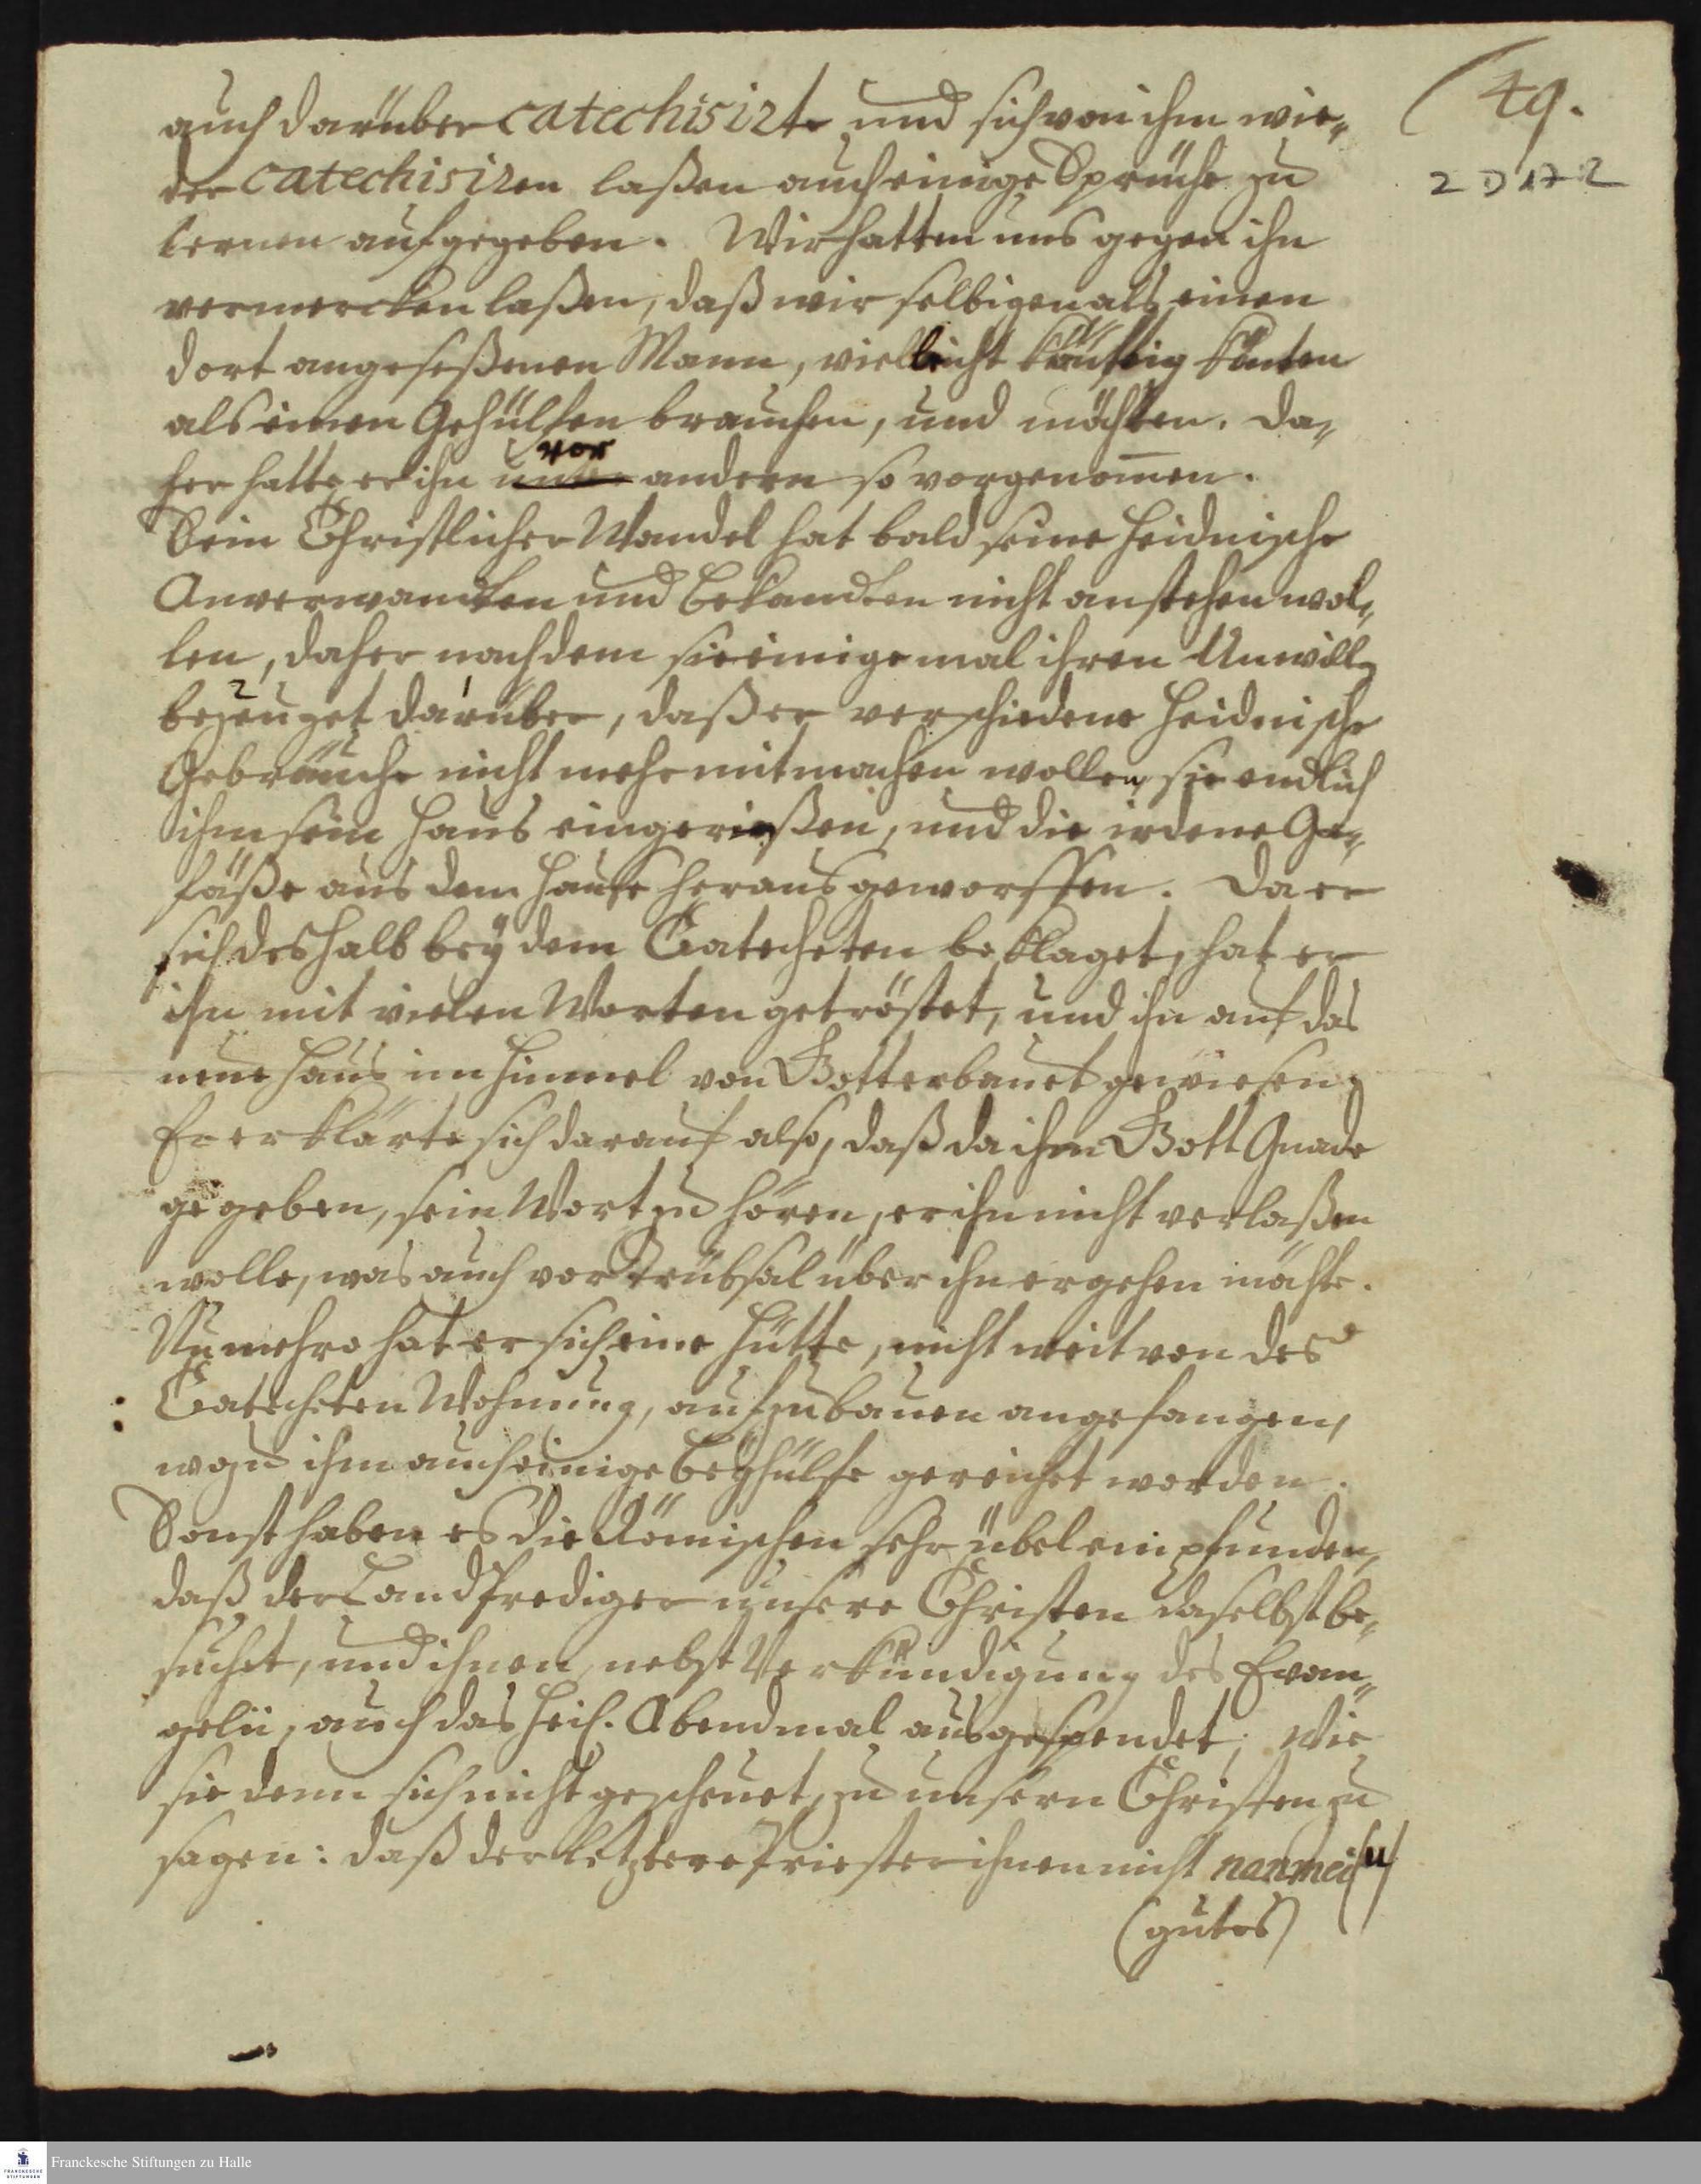 (49.
2 D 17 2
auch darüber catechisirte und sich von ihm wie„
der catechisiren laßen auch einige Sprüche zu
lernen aufgegeben. Wir hatten uns gegen ihn
vermercken laßen, daß wir selbigen als einen
dort angeseßenen Mann, vielleicht künftig könten
als einen Gehülfen brauchen, und möchten. Da„
vor
her hatte er ihn unter andern so vorgenom̄en.
Sein Christlicher Wandel hat bald seine Heidnische
Anverwandten und Bekandten nicht anstehen wol„
len, daher nachdem sie einige mal ihren Unwille
2 1
bezeuget darüber, daß er verschiedene Heidnische
Gebräuche nicht mehr mitmachen wollen, sie endlich
ihm sein Haus eingerißen, und die irdene Ge„
fäße aus dem Hause heraus geworffen. Da er
sich deshalb beÿ dem Catecheten beklaget, hat er
ihn mit vielen Worten getröstet, und ihn auf das
neue Haus im Himmel von Gott erbauet gewiesen;
Er erklärte sich darauf also, daß da ihm Gott Gnade
gegeben, sein Wort zu hören, er ihn nicht verlaßen
wolle, was auch vor Trübsal über ihn ergehen möchte.
Nunmehro hat er sich eine Hütte, nicht weit von des
Catecheten Wohnung, aufzubauen angefangen,
wozu ihm auch einige Beÿhülfe gereichet worden.
Sonst haben es die Römischen sehr übel empfunden,
daß der Landprediger unsere Christen daselbst be„
suchet, und ihnen, nebst Verkündigung des Evan„
gelii, auch das Heil. Abendmal ausgespendet; Wie
sie denn sich nicht gescheuet, zu unsern Christen zu
sagen: daß der letztere Priester ihnen nicht nanmei(u)
(gutes)
Franckesche Stiftungen zu Halle